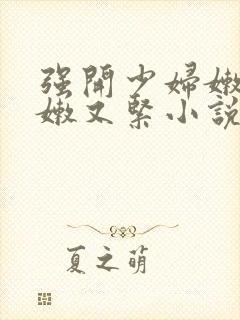 强開少婦嫩
嫩又緊小說
夏之萌